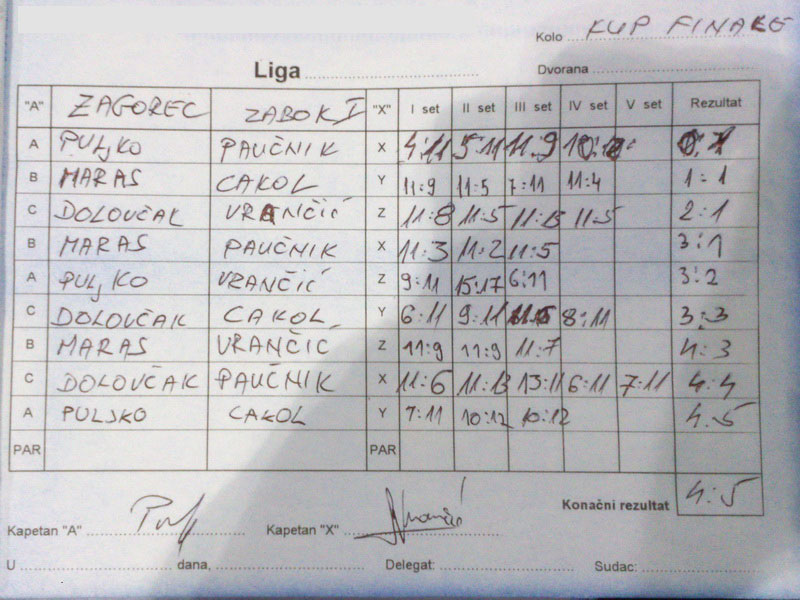 Kolo KUP FINALE
Liga Dvorana
"A" ZAGOREC ZABOK I "X" I set II set III set IV set V set Rezultat
A PULJKO PAUČNIK X 4:11 5:11 11:9 0:1
B MARAS CAKOL Y 11:9 11:5 7:11 11:4 1:1
C DOLOVČAK VRANČIĆ Z 11:8 11:5 11:5 2:1
B MARAS PAUČNIK X 11:3 11:2 11:5 3:1
A PULJKO VRANČIĆ Z 9:11 15:17 6:11 3:2
C DOLOVČAK CAKOL Y 6:11 9:11 8:11 3:3
B MARAS VRANČIĆ Z 11:9 11:9 11:7 4:3
C DOLOVČAK PAUČNIK X 11:6 11:13 13:11 6:11 7:11 4:4
A PULJKO CAKOL Y 7:11 10:12 10:12 4:5
PAR PAR
Konačni rezultat 4:5
Kapetan "A" Kapetan "X"
U dana, Delegat: Sudac: